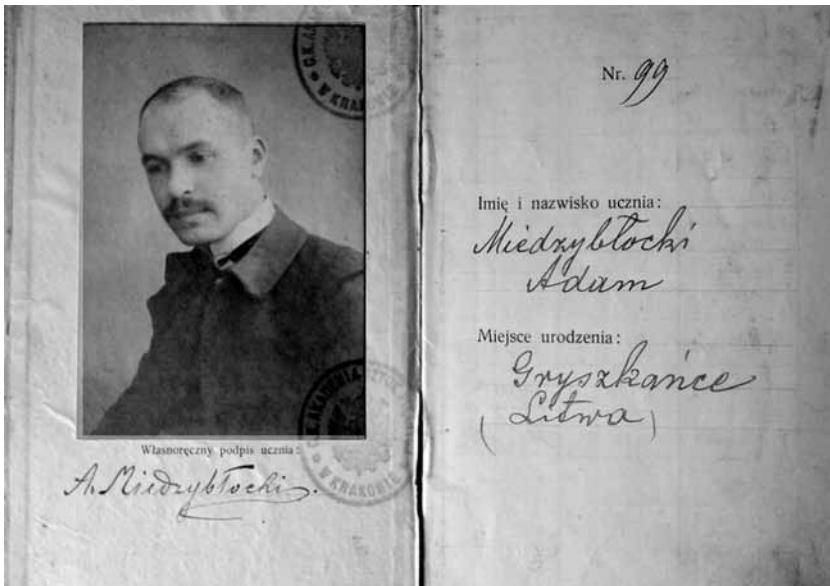 C.K. AKADEMIA
W KRAKOWIE
Własnoręczny podpis ucznia:
A. Miedzybłocki.
C.K. AKADEMIA SZTUK
W KRAKOWIE
Nr. 99
Imię i nazwisko ucznia:
Miedzybłocki
Adam
Miejsce urodzenia:
Gryszkańce
(Litwa)